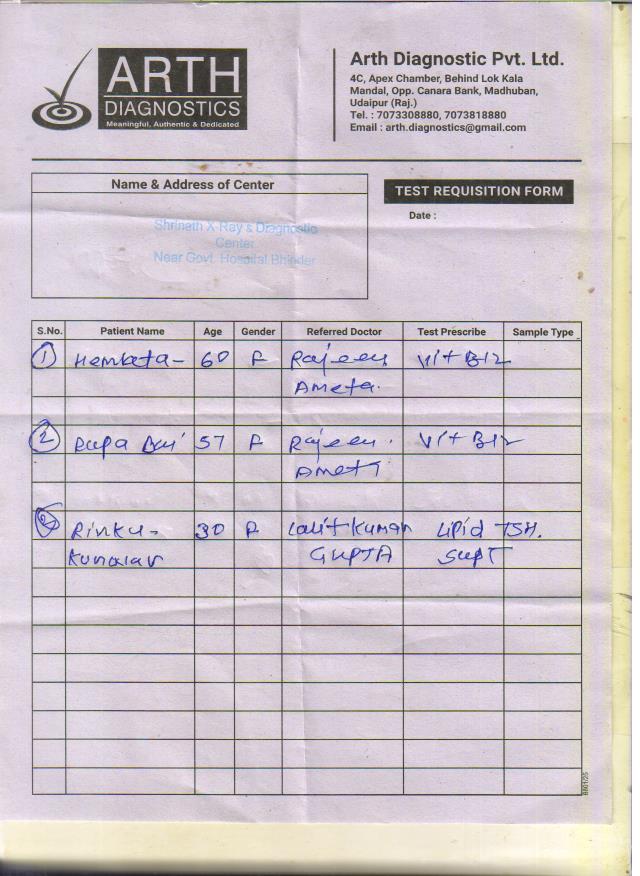 ARTH
DIAGNOSTICS
Meaningful, Authentic & Dedicated
Arth Diagnostic Pvt. Ltd.
4C, Apex Chamber, Behind Lok Kala
Mandal, Opp. Canara Bank, Madhuban,
Udaipur (Raj.)
Tel. : 7073308880, 7073818880
Email : arth.diagnostics@gmail.com
Name & Address of Center
TEST REQUISITION FORM
Date :
Shrinath X-Ray & Diagnostic
Center
Near Govt. Hospital Bhinder
S.No. Patient Name Age Gender Referred Doctor Test Prescribe Sample Type
1 Hemlata- 60 F Rajeev Vit B12
Ameta.
2 Rupa Bai 57 F Rajeev. Vit B12
Ameta
Rinku- 30 F Lalit Kumar Lipid TSH.
Kunwar GUPTA SGPT